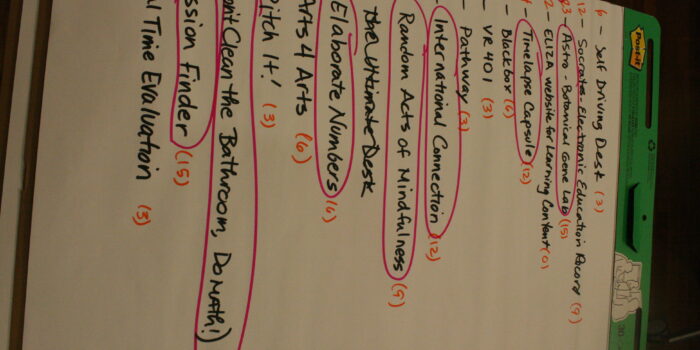 Post-it
6 - Self Driving Desk (3)
12 - Socrates - Electronic Education Record (9)
23 - Astro - Botanical Gene Lab (15)
2 - ELIZA website for Learning Content (0)
- Timelapse Capsule (12)
- Blackbox (6)
- VR 401 (3)
- Pathway (3)
- International Connection (12)
Random Acts of Mindfulness (9)
The Ultimate Desk
Elaborate Numbers (6)
Arts 4 Arts (6)
itch It! (3)
Clean the Bathroom, Do Math!)
ssion Finder (15)
l Time Evaluation (3)
30